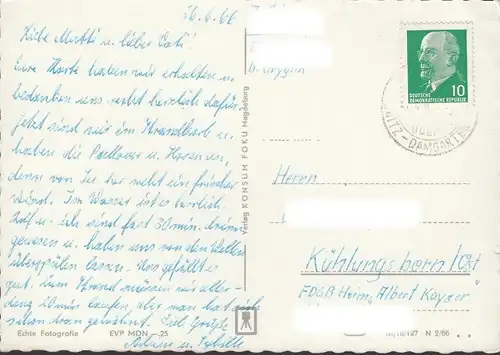 26.6.66
Liebe Mutti u. lieber Vati!
Eure Karte haben wir erhalten u.
bedanken uns recht herzlich dafür.
Jetzt sind wir im Strandkorb u.
haben die Pullover u. Hosen an,
denn von See her weht ein frischer
Wind. Im Wasser ist es herrlich.
Rolf u. ich sind fast 30 min. drinn
gewesen u. haben uns von den Wellen
überspülen lassen. Uns gefällt es
gut. Zum Strand müssen wir aller-
dings 20 min laufen aber man hat sich
schon dran gewöhnt. Viel Grüße
u. Sybille
Echte Fotografie EVP MDN —.25
Verlag KONSUM FOKU Magdeburg
DEUTSCHE
DEMOKRATISCHE REPUBLIK
10
RIBNITZ-DAMGARTEN
Herrn
Kühlungsborn/Ost
FDGB Heim „Albert Kayser"
N 2/66